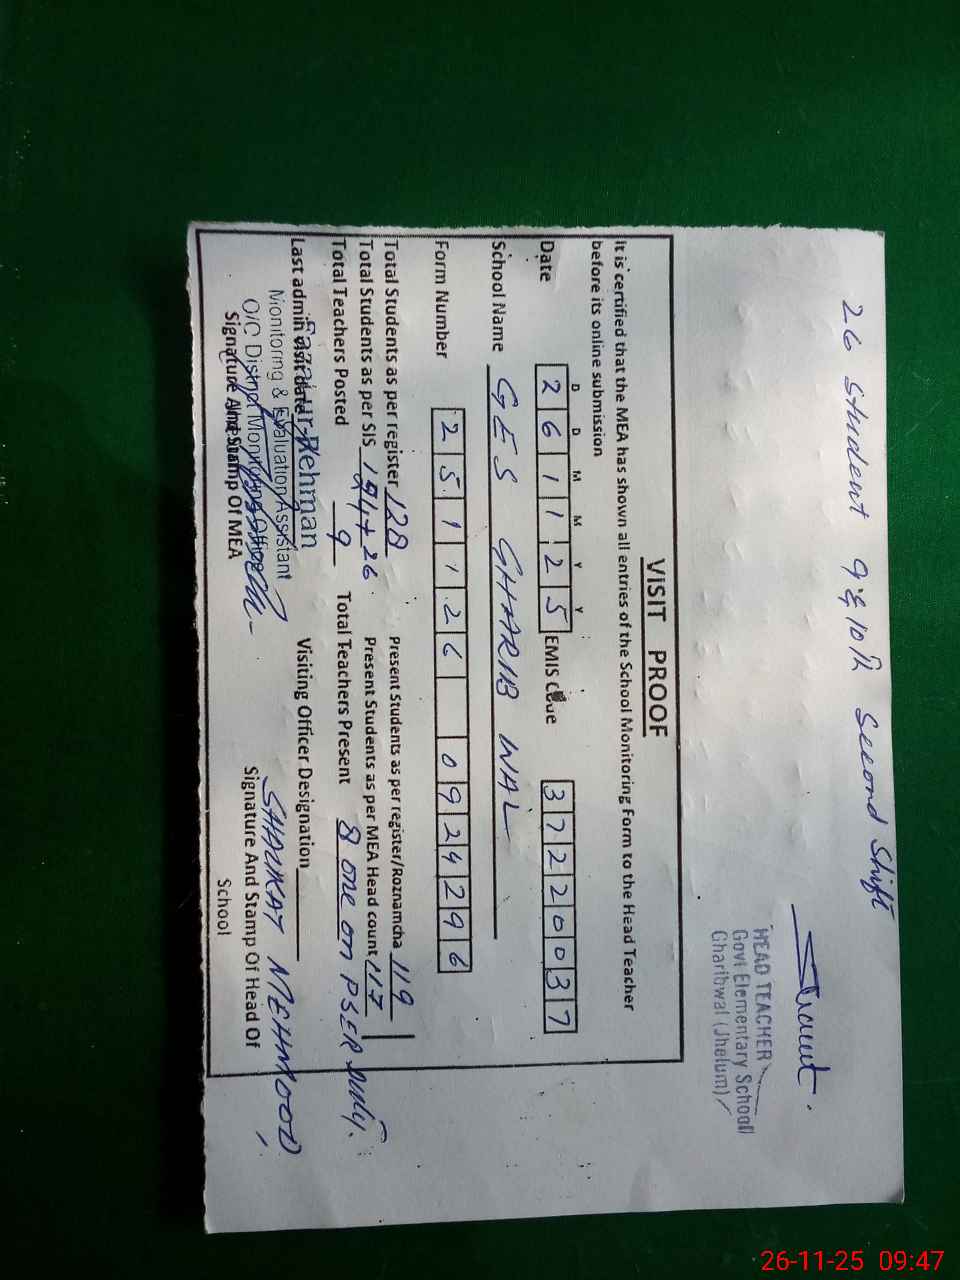 26 student 9 & 10th Second Shift
HEAD TEACHER
Govt Elementary School
Gharibwal (Jhelum)
VISIT PROOF
It is certified that the MEA has shown all entries of the School Monitoring Form to the Head Teacher
before its online submission
D D M M Y Y
Date 2 6 1 1 2 5 EMIS Code 3 7 2 2 0 0 3 7
School Name GES GHARIB WAL
Form Number 2 5 1 1 2 6 0 9 2 4 2 9 6
Total Students as per register 128 Present Students as per register/Roznamcha 119
Total Students as per SIS + 26 Present Students as per MEA Head count 117
Total Teachers Posted 9 Total Teachers Present 8 one on PSER duty.
Last admin visit date Visiting Officer Designation
Fazal-ur-Rehman
Monitoring & Evaluation Assistant
O/C District Monitoring Office
SHAUKAT MEHMOOD
Signature And Stamp Of MEA Signature And Stamp Of Head Of
School
26-11-25 09:47